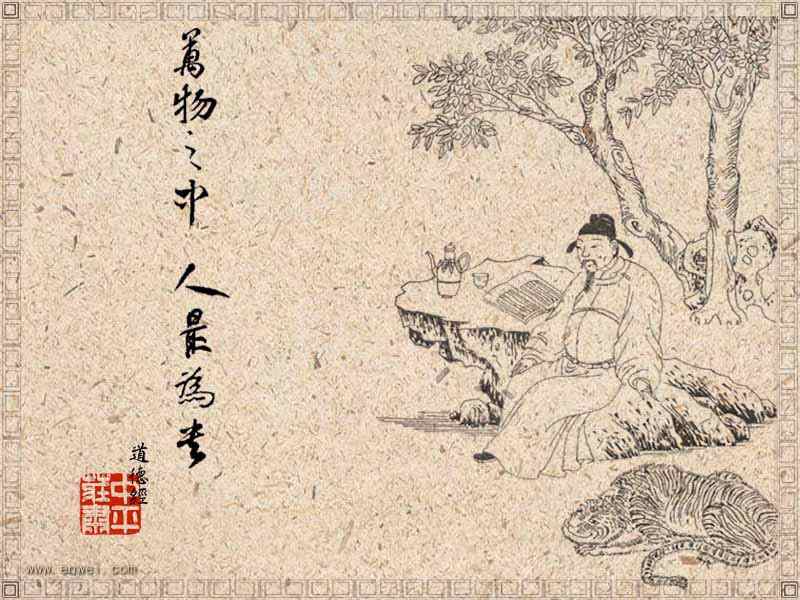 萬物之中 人最為貴
道德經
中平
莊肅
www.eqwei.com